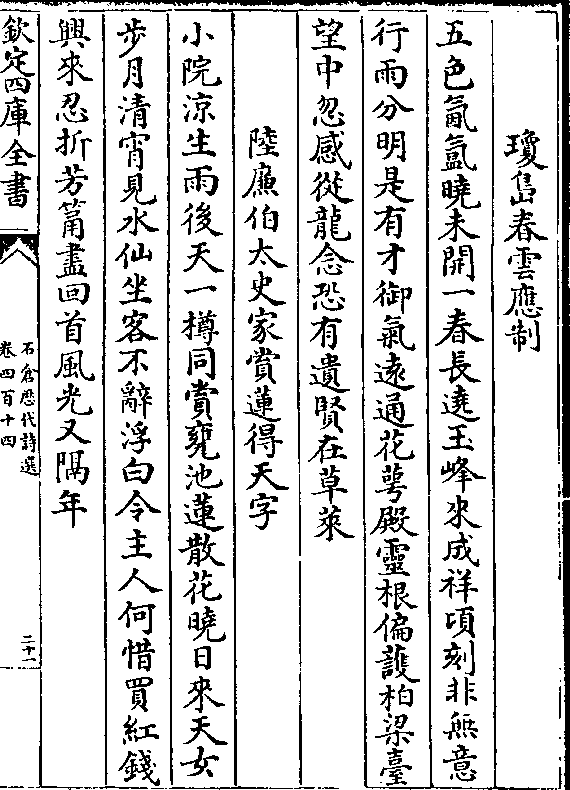 瓊島春雲應制
五色氤氳曉未開一春長遶玉峰來成祥頃刻非無意
行雨分明是有才御氣遠通花萼殿靈根偏護柏梁臺
望中忽感從龍念恐有遺賢在草萊
陸廉伯太史家賞蓮得天字
小院涼生雨後天一樽同賞甕池蓮散花曉日來天女
步月清宵見水仙坐客不辭浮白令主人何惜買紅錢
興來忍折芳筩盡回首風光又隔年
欽定四庫全書
石倉歷代詩選
卷四百十四
二十一